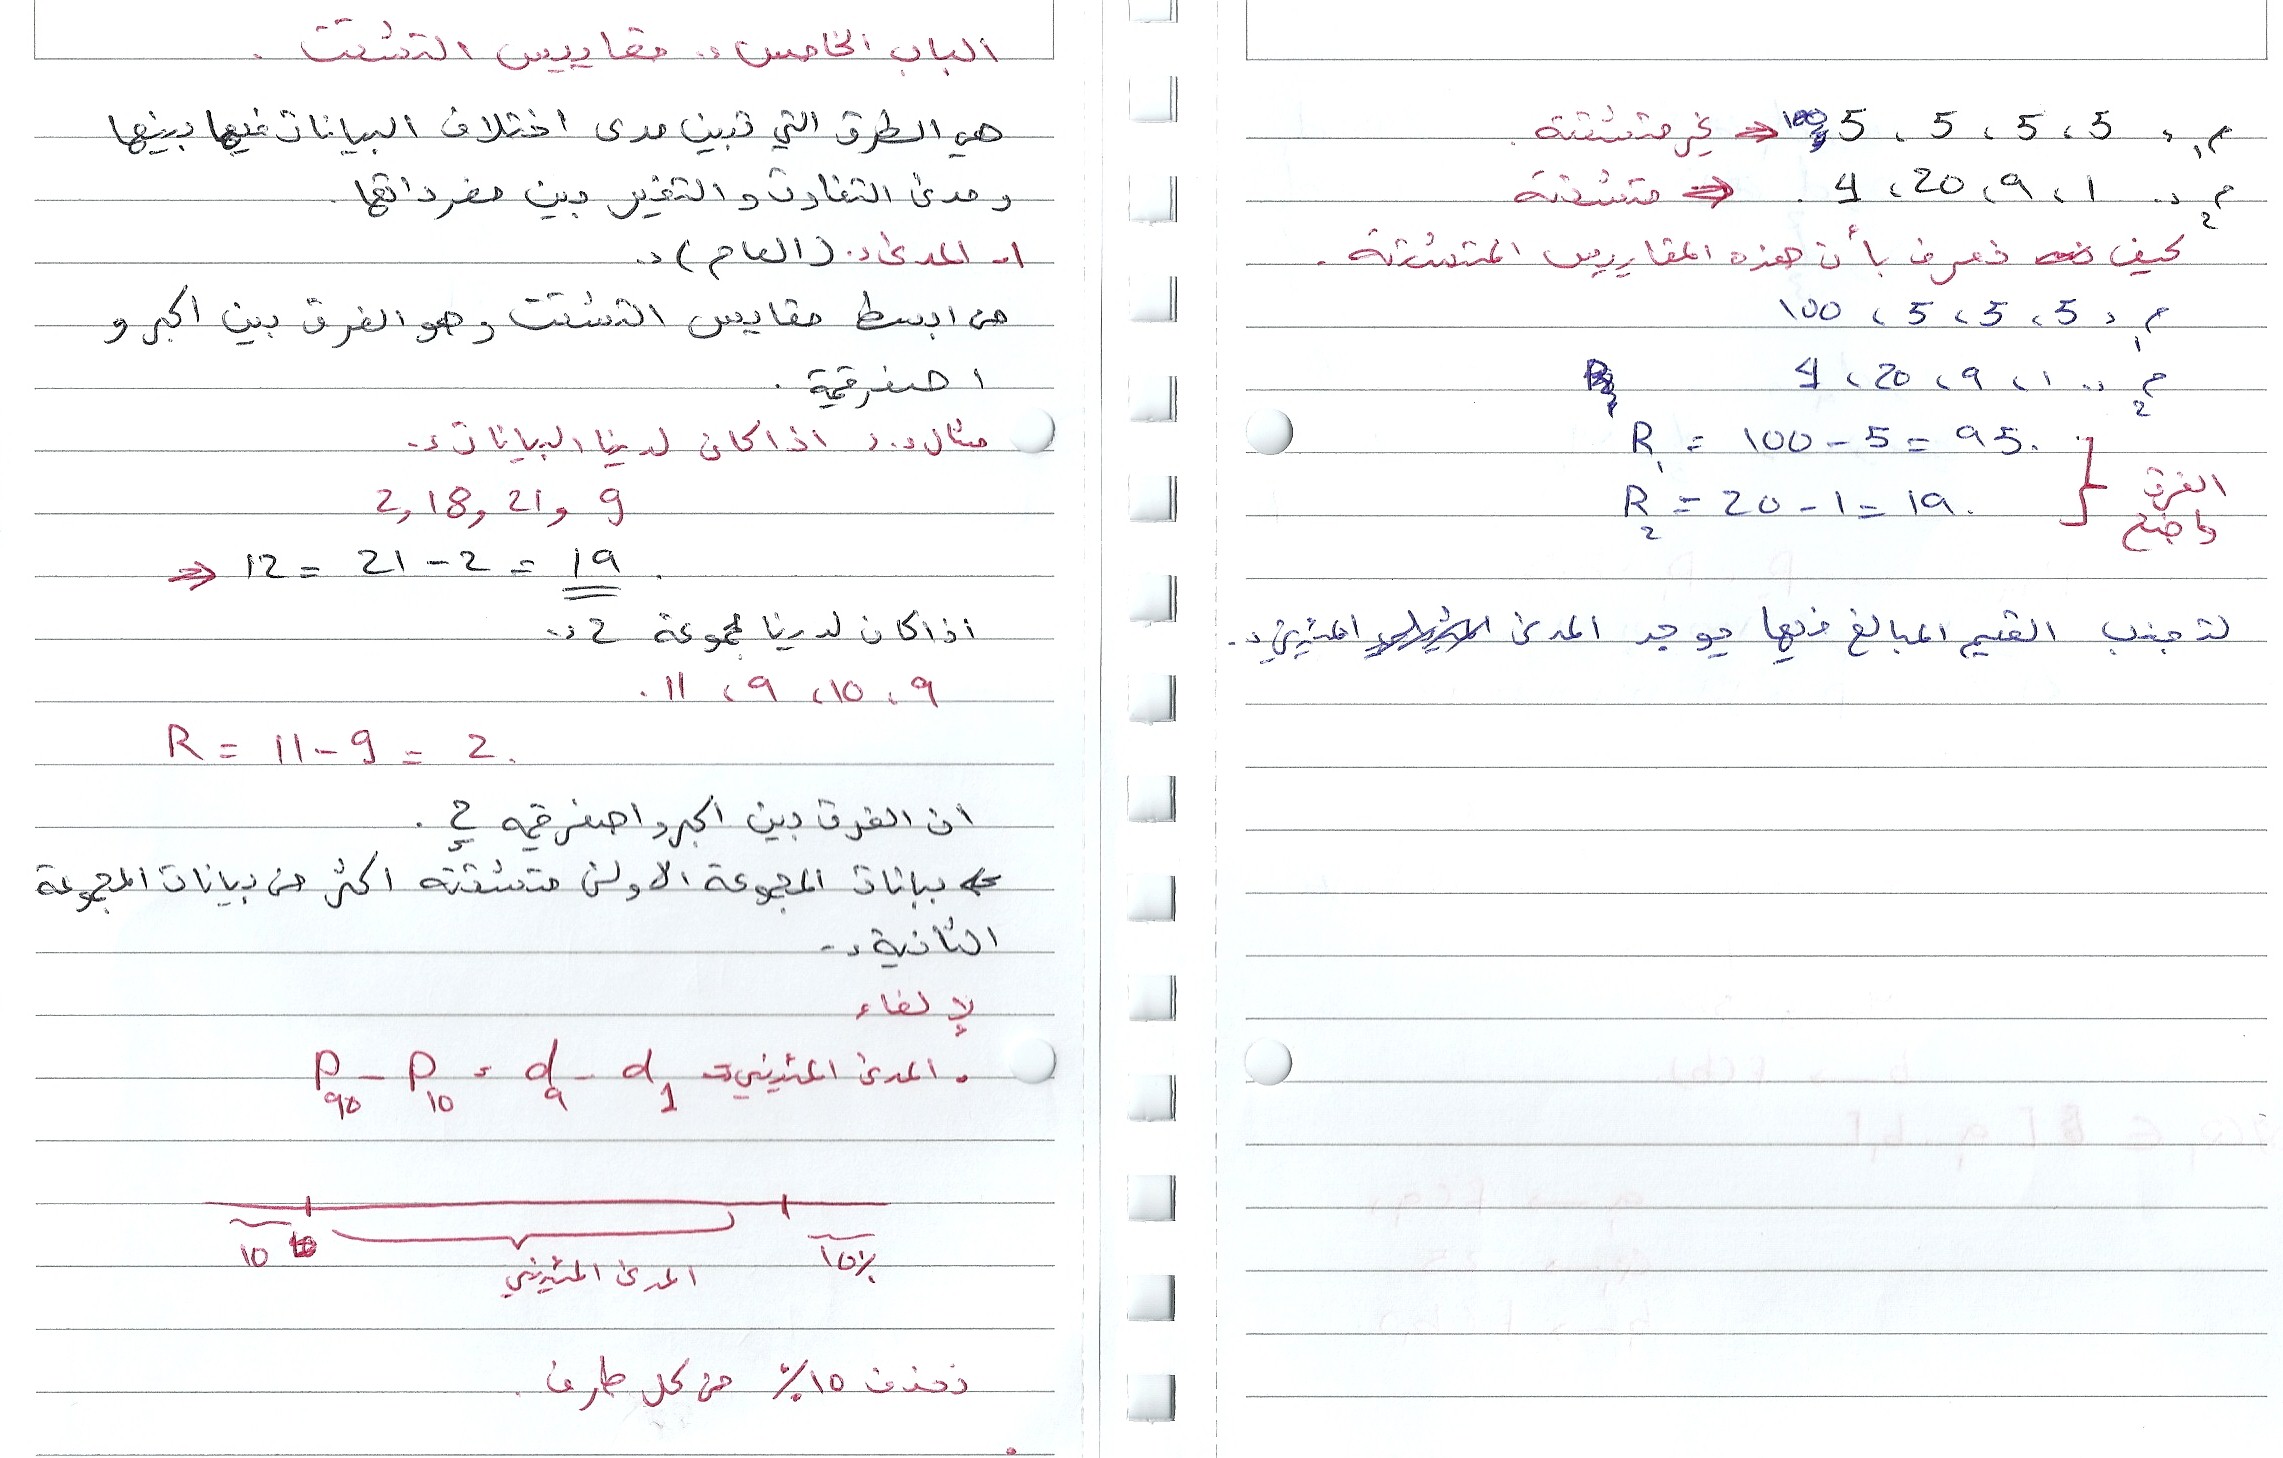 الباب الخامس :. مقاييس التشتت .
هي الطرق التي تبين مدى اختلاف البيانات فيما بينها
و مدى التفاوت و التغير بين مفرداتها .
1- المدى :. (العام) :.
من ابسط مقاييس التشتت و هو الفرق بين اكبر و
اصغر قيمة .
مثال :. اذا كان لدينا البيانات :.
2, 18, 21, 9
⇒ 12 = 21 - 2 = 19 .
اذا كان لدينا مجموعة 2 :.
9 ، 10 ، 9 ، 11 .
R = 11 - 9 = 2 .
ان الفرق بين اكبر و اصغر قيمه 2 .
بيانات المجموعة الاولى متشتته اكثر من بيانات المجموعة
الثانية :.
لإلغاء
. المدى المئيني = P90 - P10 = d9 - d1
10 10%
المدى المئيني
نحذف 10% من كل طرف .
م1 : 5 ، 5 ، 5 ، 5 100 ⇒ غير متشتته .
م2 :. 1 ، 9 ، 20 ، 4 . ⇒ متشتته
كيف نعرف بأن هذه المقاييس المتشتته .
م1 : 5 ، 5 ، 5 ، 100
م2 :. 1 ، 9 ، 20 ، 4
R1 = 100 - 5 = 95 .
R2 = 20 - 1 = 19 .
الفرق
واضح
لتجنب القيم المبالغ فيها يوجد المدى المئيني :.